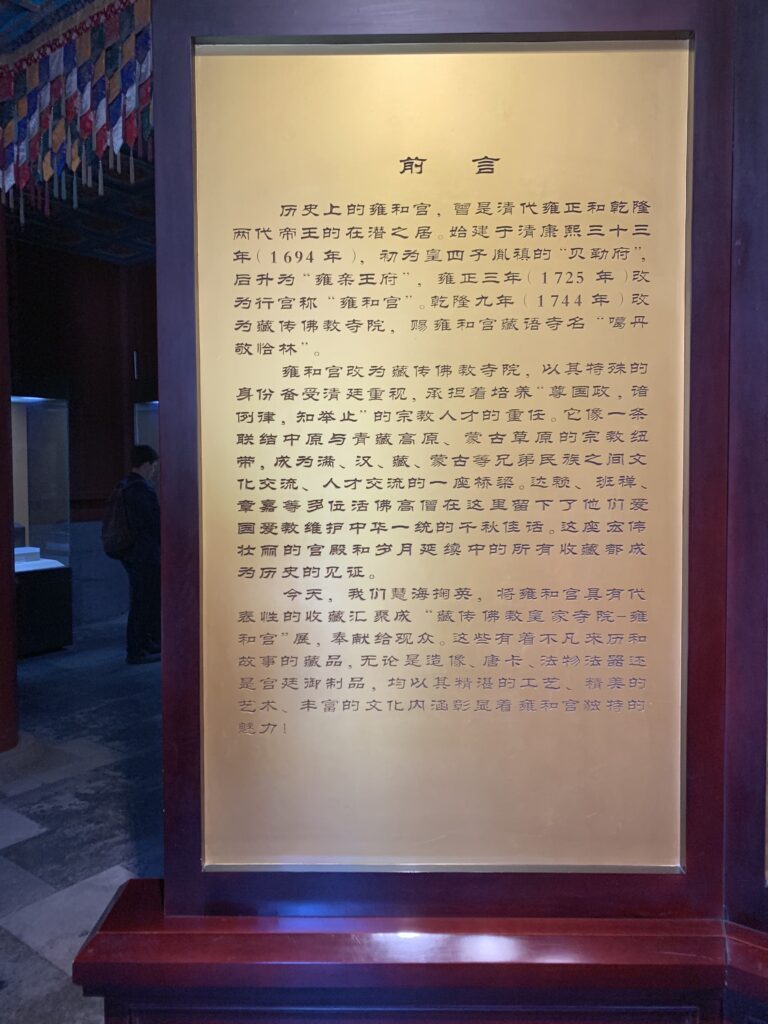 前言
历史上的雍和宫，曾是清代雍正和乾隆
两代帝王的在潜之居。始建于清康熙三十三
年（1694 年），初为皇四子胤禛的“贝勒府”，
后升为“雍亲王府”，雍正三年（1725 年）改
为行宫称“雍和宫”。乾隆九年（1744 年）改
为藏传佛教寺院，赐雍和宫藏语寺名“噶丹
敬恰林”。
雍和宫改为藏传佛教寺院，以其特殊的
身份备受清廷重视，承担着培养“尊国政，谙
例律，知举止”的宗教人才的重任。它像一条
联结中原与青藏高原、蒙古草原的宗教纽
带，成为满、汉、藏、蒙古等兄弟民族之间文
化交流、人才交流的一座桥梁。达赖、班禅、
章嘉等多位活佛高僧在这里留下了他们爱
国爱教维护中华一统的千秋佳话。这座宏伟
壮丽的宫殿和岁月延续中的所有收藏都成
为历史的见证。
今天，我们慧海掬英，将雍和宫具有代
表性的收藏汇聚成“藏传佛教皇家寺院-雍
和宫”展，奉献给观众。这些有着不凡来历和
故事的藏品，无论是造像、唐卡、法物法器还
是宫廷御制品，均以其精湛的工艺、精美的
艺术、丰富的文化内涵彰显着雍和宫独特的
魅力！